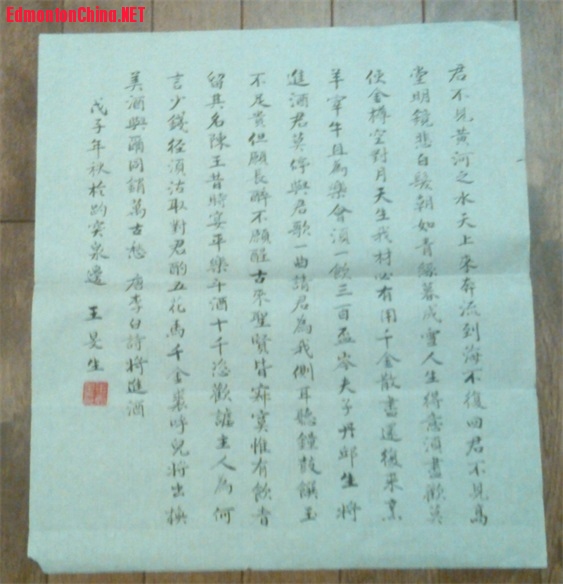 EdmontonChina.NET
君不見黃河之水天上來奔流到海不復回君不見高
堂明鏡悲白髮朝如青絲暮成雪人生得意須盡歡莫
使金樽空對月天生我材必有用千金散盡還復來烹
羊宰牛且為樂會須一飲三百盃岑夫子丹邱生將
進酒君莫停與君歌一曲請君為我側耳聽鐘鼓饌玉
不足貴但願長醉不願醒古來聖賢皆寂寞惟有飲者
留其名陳王昔時宴平樂斗酒十千恣歡謔主人為何
言少錢徑須沽取對君酌五花馬千金裘呼兒將出換
美酒與爾同銷萬古愁 唐李白詩將進酒
戊子年秋於趵突泉邊 王昊生